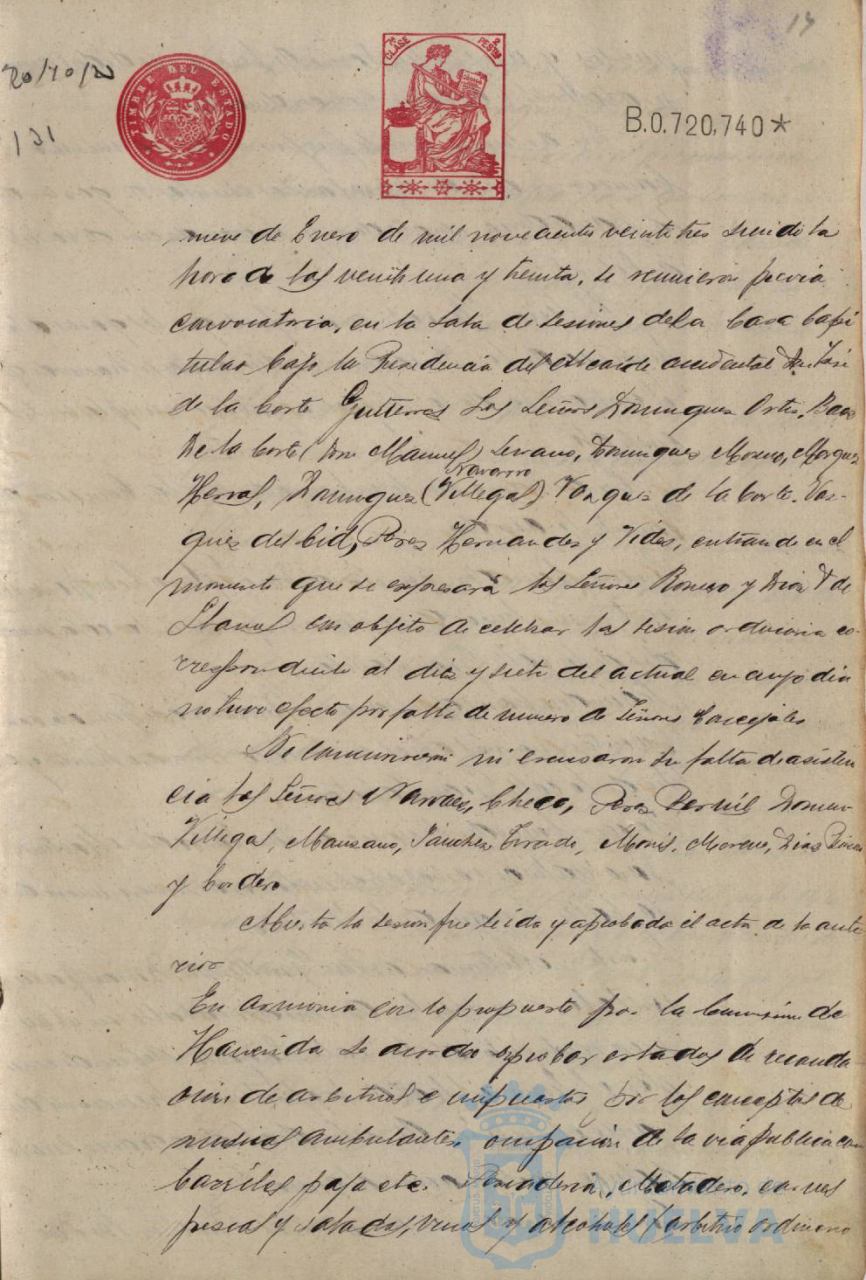 14
20/10/
TIMBRE DEL ESTADO
7ª CLASE 2 PESTAS
B.0.720,740*
nueve de Enero de mil novecientos veintitres siendo la
hora de las veintiuna y treinta, se reunieron previa
convocatoria, en la Sala de sesiones de la Casa Capi
tular bajo la Presidencia del Alcalde accidental Don José
de la Corte Gutierrez los Señores Dominguez Ortiz,
De la Corte (Don Manuel) Serrano, Dominguez Moreno, Marquez
Navarro
Herval, Dominguez (Villegas) Vazquez de la Corte, Vaz-
quez del Cid, Perez Hernandez y Vides, entrando en el
momento que se expresará los Señores Romero y Diaz F de
Llanos con objeto de celebrar la sesion ordinaria co-
rrespondiente al diez y siete del actual en cuyo dia
no tuvo efecto por falta de numero de Señores Concejales
No concurrieron ni excusaron su falta de asisten
cia los Señores Narvaez, Checa, Perez
Villegas, Manzano, Sanchez Tirado, Monis, Moreno, Diaz
y Cordero
Abierta la sesion fue leida y aprobada el acta de la ante
rior
En armonia con lo propuesto por la Comision de
Hacienda se acordó aprobar estados de recauda
cion de arbitrios e impuestos por los conceptos de
musicas ambulantes, ocupacion de la via publica con
barriles paja etc. Pescaderia, Matadero, carnes
frescas y saladas, vinos y alcoholes (arbitrio ordinario
HUELVA